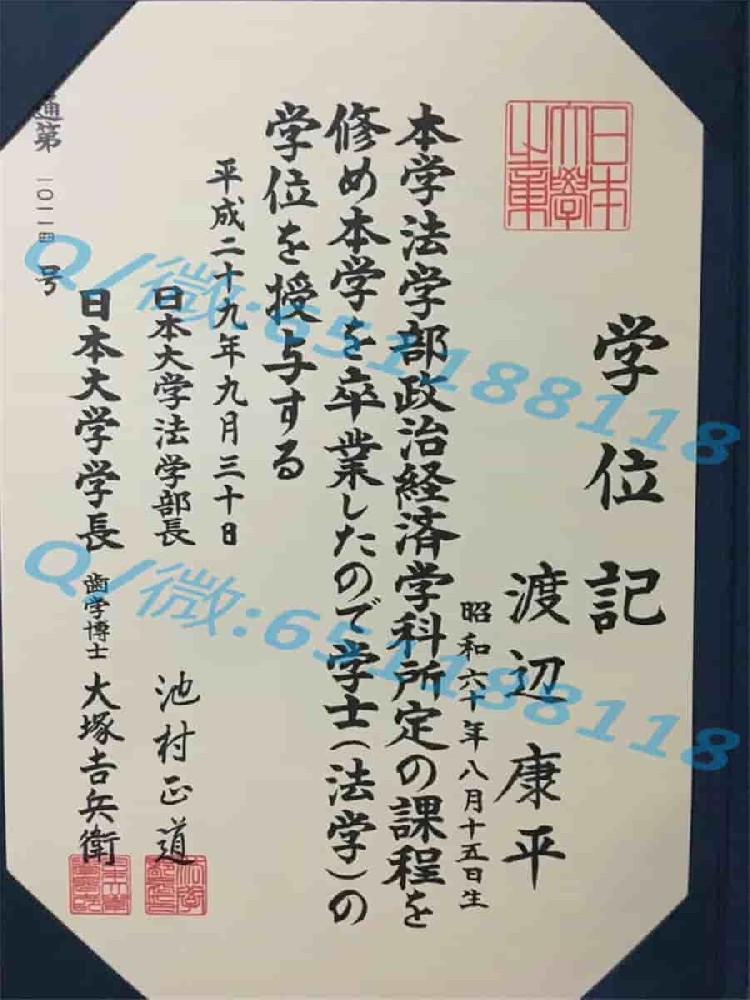 日本
大學
之章
学位記
渡辺康平
昭和六十年八月十五日生
本学法学部政治経済学科所定の課程を
修め本学を卒業したので学士(法学)の
学位を授与する
平成二十九年九月三十日
日本大学法学部長 池村正道
日本大学学長 歯学博士 大塚吉兵衛
通第一〇一一四号
Q/微:651188118
Q/微:651188118